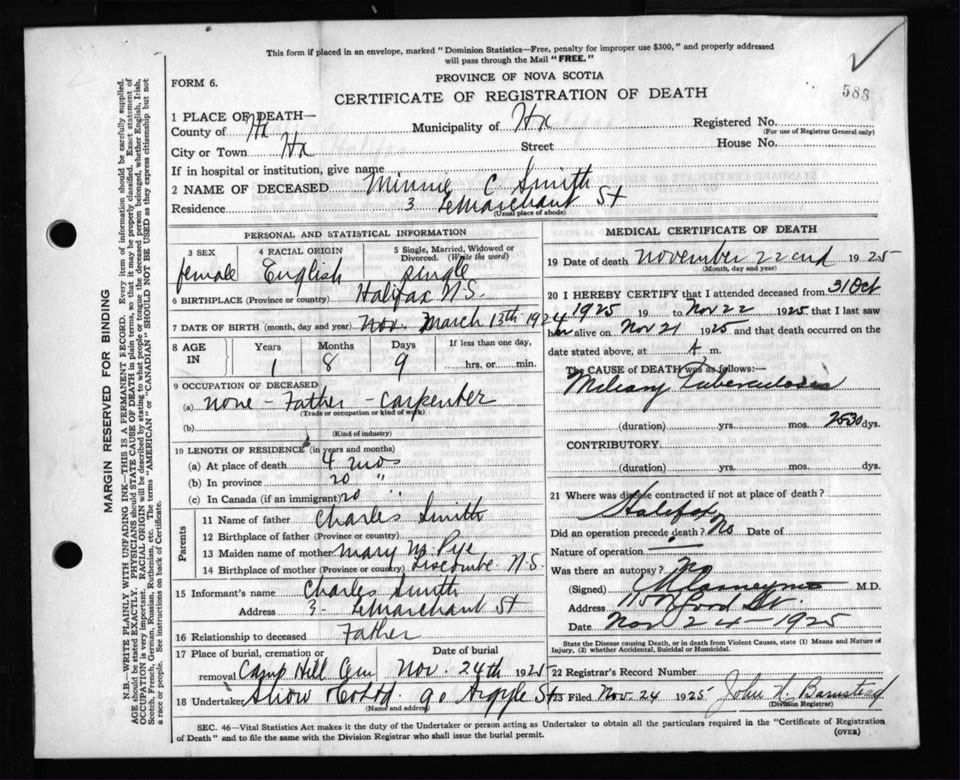 This form if placed in an envelope, marked "Dominion Statistics—Free, penalty for improper use $300," and properly addressed
will pass through the Mail "FREE."
PROVINCE OF NOVA SCOTIA
FORM 6.
588
CERTIFICATE OF REGISTRATION OF DEATH
1 PLACE OF DEATH—
County of Hx Municipality of Hx Registered No.
(For use of Registrar General only)
City or Town Hx Street House No.
If in hospital or institution, give name
2 NAME OF DECEASED Minnie C. Smith
Residence 3 LeMarchant St
(Usual place of abode)
PERSONAL AND STATISTICAL INFORMATION
3 SEX 4 RACIAL ORIGIN 5 Single, Married, Widowed or
Divorced. (Write the word)
female English single
6 BIRTHPLACE (Province or country) Halifax N.S.
7 DATE OF BIRTH (month, day and year) Nov. March 13th 1924
8 AGE IN Years Months Days If less than one day,
1 8 9 hrs. or min.
9 OCCUPATION OF DECEASED
(a) none - Father - carpenter
(Trade or occupation or kind of work)
(b)
(Kind of industry)
10 LENGTH OF RESIDENCE (in years and months)
(a) At place of death 4 mos
(b) In province 20 "
(c) In Canada (if an immigrant) 20 "
Parents
11 Name of father Charles Smith
12 Birthplace of father (Province or country)
13 Maiden name of mother Mary M. Pye
14 Birthplace of mother (Province or country) Liscombe N.S.
15 Informant's name Charles Smith
Address 3- LeMarchant St
16 Relationship to deceased Father
17 Place of burial, cremation or Date of burial
removal Camp Hill Cem Nov. 24th 1925
18 Undertaker Snow & Co Ltd. 90 Argyle St
(Name and address)
MEDICAL CERTIFICATE OF DEATH
19 Date of death November 22nd 1925
(Month, day and year)
20 I HEREBY CERTIFY that I attended deceased from 31 Oct
1925 19 to Nov 22 1925 that I last saw
her alive on Nov 21 1925 and that death occurred on the
date stated above, at A m.
The CAUSE of DEATH was as follows:—
Miliary Tuberculosis
(duration) yrs. mos. dys.
CONTRIBUTORY
(duration) yrs. mos. dys.
21 Where was disease contracted if not at place of death?
Halifax
Did an operation precede death? No Date of
Nature of operation —
Was there an autopsy? No
(Signed) M.D.
Address
Date Nov 24 - 1925
State the Disease causing Death, or in death from Violent Causes, state (1) Means and Nature of
Injury, (2) whether Accidental, Suicidal or Homicidal.
22 Registrar's Record Number
23 Filed Nov. 24 1925 John N. Barnstead
(Division Registrar)
SEC. 46—Vital Statistics Act makes it the duty of the Undertaker or person acting as Undertaker to obtain all the particulars required in the "Certificate of Registration
of Death" and to file the same with the Division Registrar who shall issue the burial permit.
(OVER)
MARGIN RESERVED FOR BINDING
N.B.—WRITE PLAINLY WITH UNFADING INK—THIS IS A PERMANENT RECORD. Every item of information should be carefully supplied.
AGE should be stated EXACTLY. PHYSICIANS should STATE CAUSE OF DEATH in plain terms, so that it may be properly classified. Exact statement of
OCCUPATION is very important. RACIAL ORIGIN will be described by stating to what people or tongue the deceased person belonged, whether English, Irish,
Scotch, French, German, Russian, Ruthenian, etc. The terms "AMERICAN" or "CANADIAN" SHOULD NOT BE USED as they express citizenship but not
a race or people. See instructions on back of Certificate.